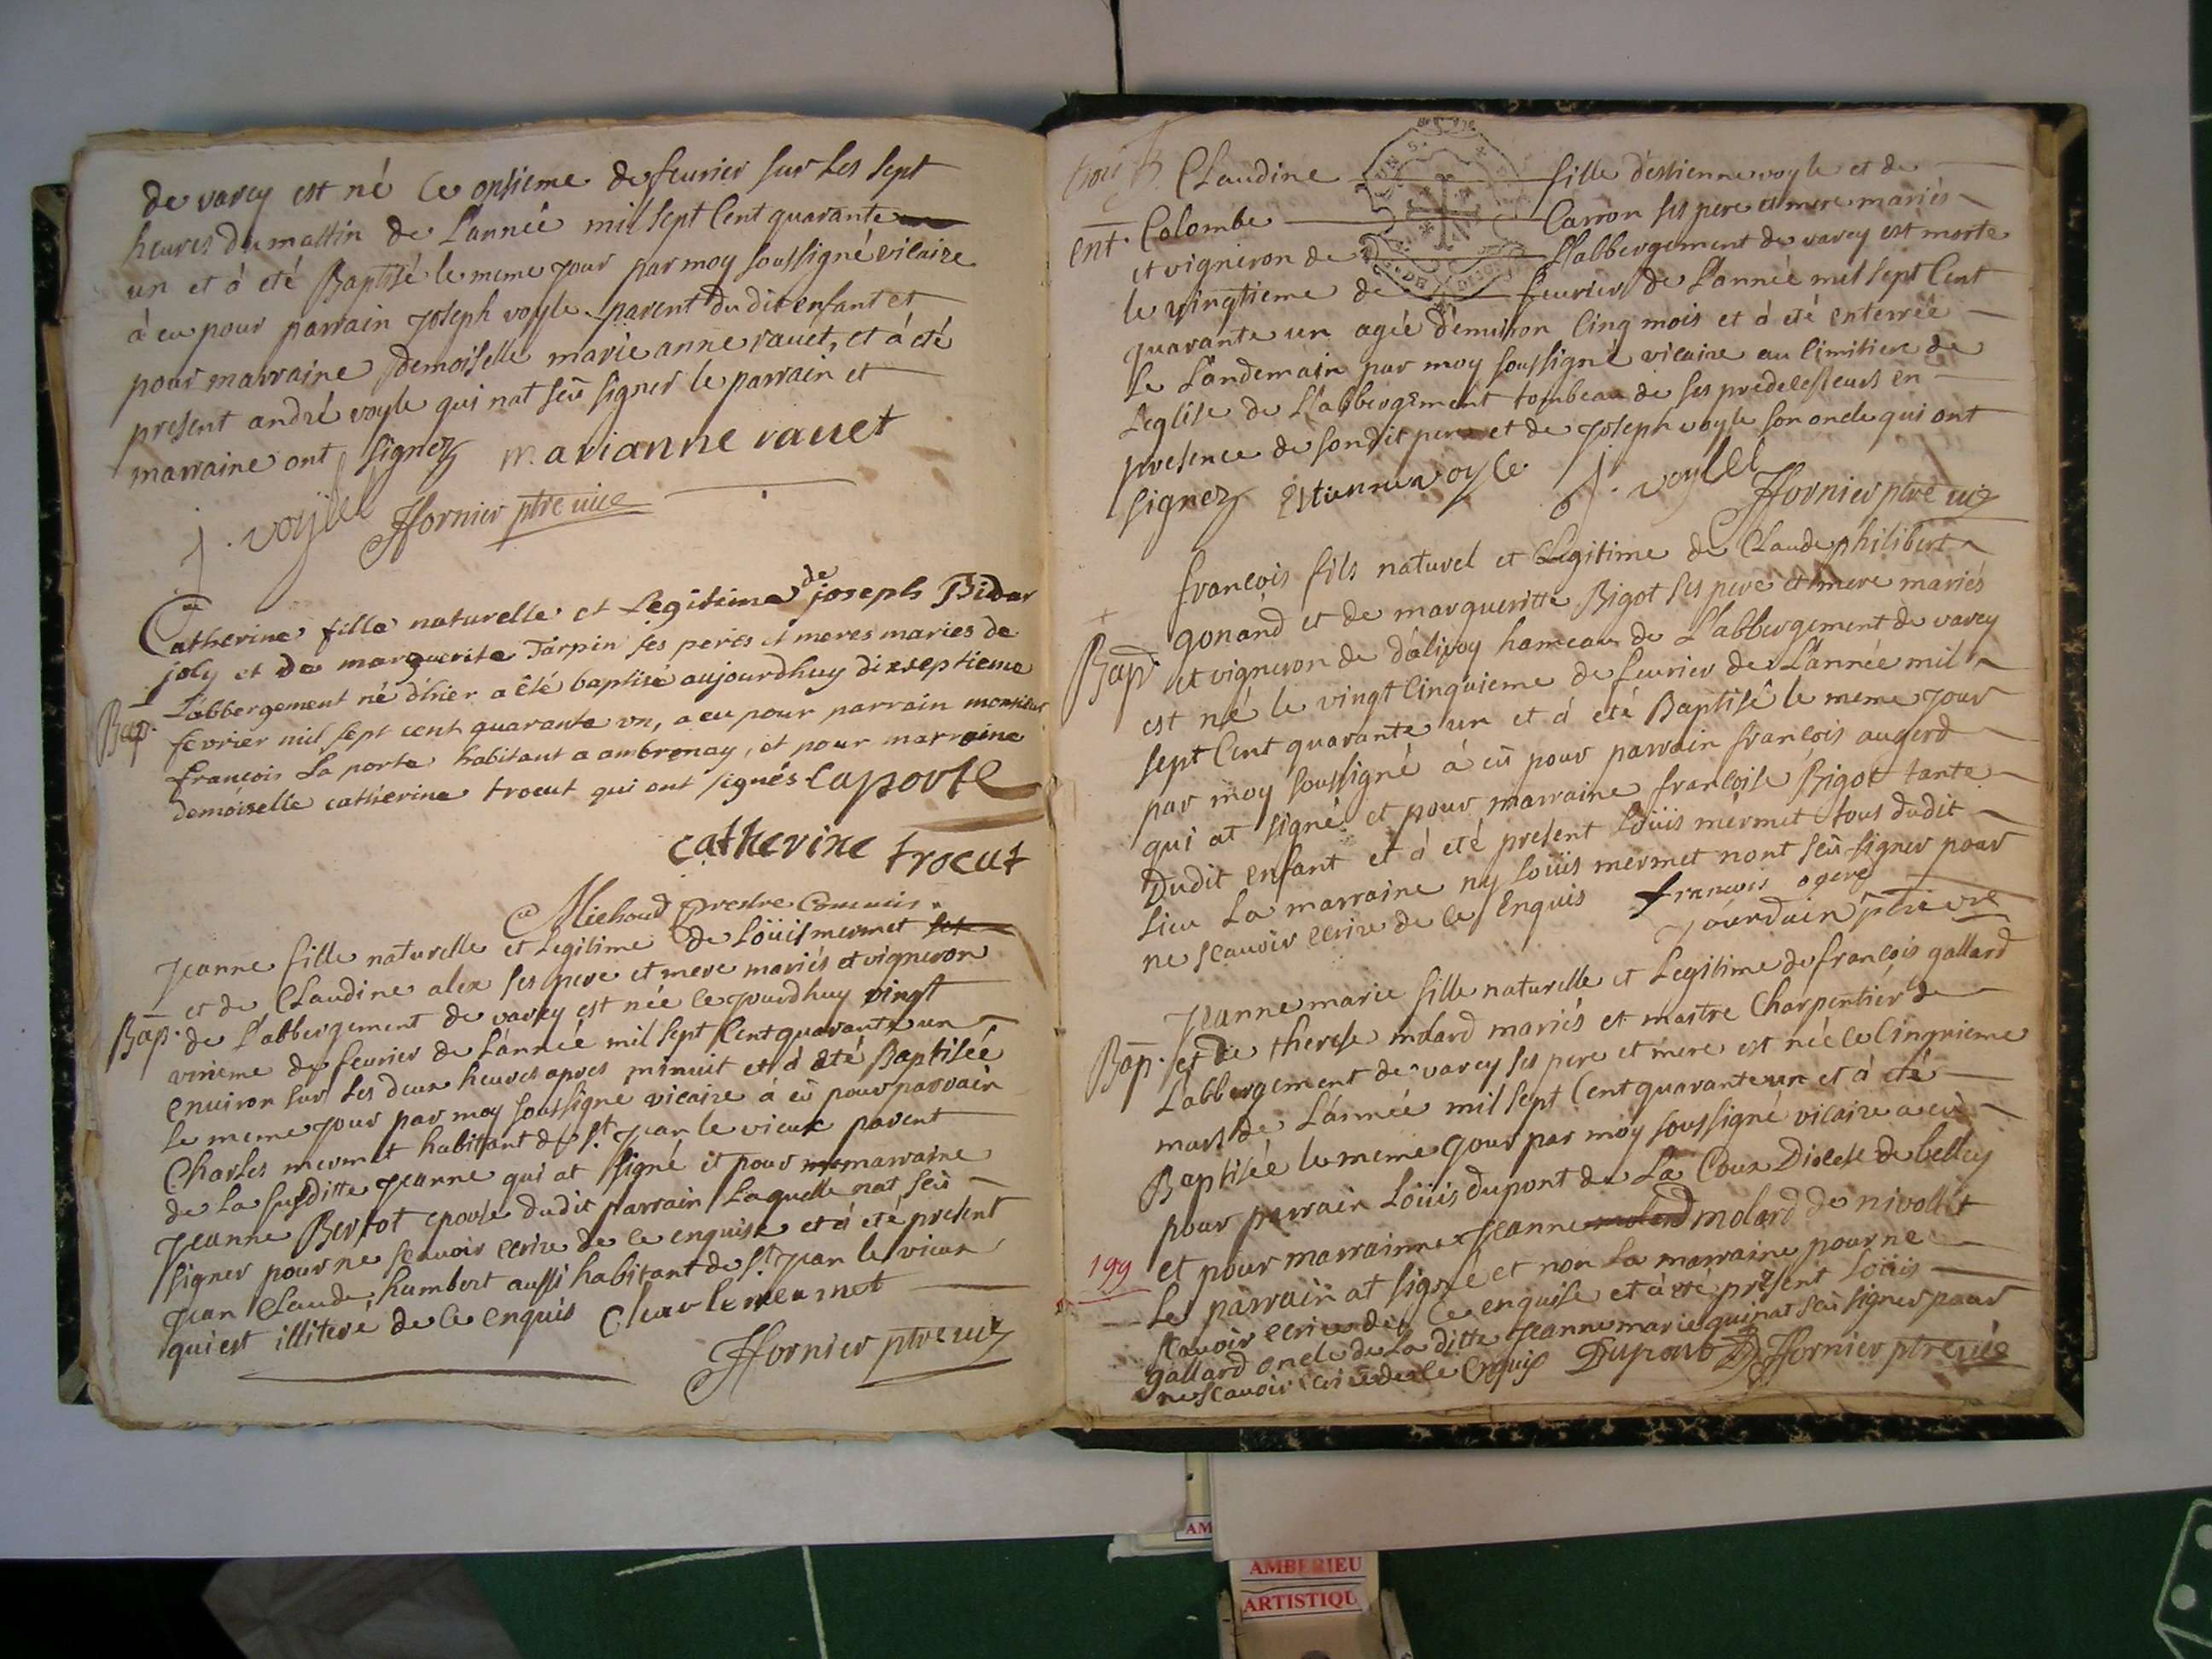 de varey est né ce onsieme de feurier sur les sept
heures du mattin de L'année mil sept Cent quarante
un et à eté Baptisé le meme jour par moy soussigné vicaire
à eu pour parrain joseph voyle parent du dit enfant et
pour marraine demoiselle marie anne rauet, et à eté
present andré voyle qui nat seü signer le parrain et
marraine ont signez marianne rauet
j. voylle ffornier ptre vice
Catherine fille naturelle et Legitime de joseph Bidar
joly et de marguerite Tarpin ses peres et meres maries de
Bap. Labbergement né d'hier a êté baptisé aujourdhuy dixseptieme
fevrier mil sept cent quarante vn, a eu pour parrain monsieur
françois La porte habitant a ambronay, et pour marraine
demoiselle catherine trocut qui ont signés Laporte
catherine trocut
Michoud prestre Commis.
Jeanne fille naturelle et Legitime de Loüis mermet
et de Claudine alex ses pere et mere mariés et vigneron
Bap. de L'abbergement de varey est née ce jourdhuy vingt
vnieme de feurier de L'année mil sept Cent quarante un
enuiron sur les deux heures apres minuit et à eté Baptisée
le meme jour par moy soussigné vicaire à eü pour parrain
Charles mermet habitant de St. jean le vieux parent
de La susditte jeanne qui at signé et pour marraine
jeanne Bertot epouse dudit parrain Laquelle nat seü
signer pour ne scauoir ecrire de ce enquise et à eté present
jean Claude humbert aussi habitant de St. jean le vieux
qui est illiteré de ce enquis Charle mermet
ffornier ptre vic
Claudine fille d'estienne voyle et de
ent. Colombe Carron ses pere et mere mariés
et vigneron de L'abbergement de varey est morte
le vingtieme de feurier de L'année mil sept Cent
quarante un agée d'enuiron Cinq mois et à eté enterrée
le Landemain par moy soussigné vicaire au Cimitiere de
Leglise de L'abbergement tombeau de ses predecesseurs en
presence de sondit pere et de joseph voyle son oncle qui ont
signez Estienne voyle J. voylle
ffornier ptre vic
françois fils naturel et Legitime de Claude philibert
gonand et de margueritte Bigot ses pere et mere mariés
Bap. et vigneron de d'alivoy hameau de L'abbergement de varey
est né le vingt Cinquieme de feurier de L'année mil
sept Cent quarante un et à eté Baptisé le meme jour
par moy soussigné à eü pour parrain françois augerd
qui at signé et pour marraine françoise Bigot tante
Dudit enfant et à eté present Loüis mermet tous dudit
Lieu La marraine ny Loüis mermet nont seü signer pour
ne scauoir ecrire de ce Enquis françois ogerd
Jourdain ptre
Jeanne marie fille naturelle et Legitime de françois gallard
Bap. et de therese molard mariés et maitre Charpentiér de
Labbergement de varey ses pere et mere est née le Cinquieme
mars de L'année mil sept Cent quarante un et à eté
Baptisée le meme jour par moy soussigné vicaire a eü
pour parrain Loüis dupont de La Coux Diocese de belley
et pour marrainne jeanne molard molard de nivollet
199 Le parrain at signé et non La marraine pour ne
scauoir ecrire de ce enquise et à eté present Loüis
gallard oncle de La ditte jeanne marie qui nat seü signer pour
ne scauoir ecrire de ce Enquis Dupont ffornier ptre vice
AMBERIEU
ARTISTIQU